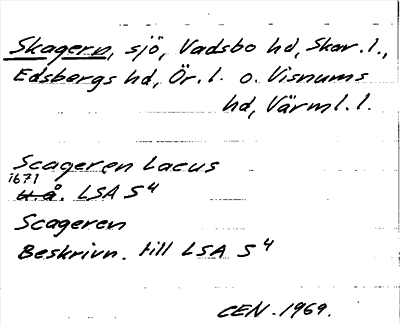 Skagern, sjö, Vadsbo hd, Skar. l.,
Edsbergs hd, Ör. l. o. Visnums
hd, Värml. l.
Scageren Lacus
1671
u.å. LSA S4
Scageren
Beskrivn. till LSA S4
CEN. 1969.